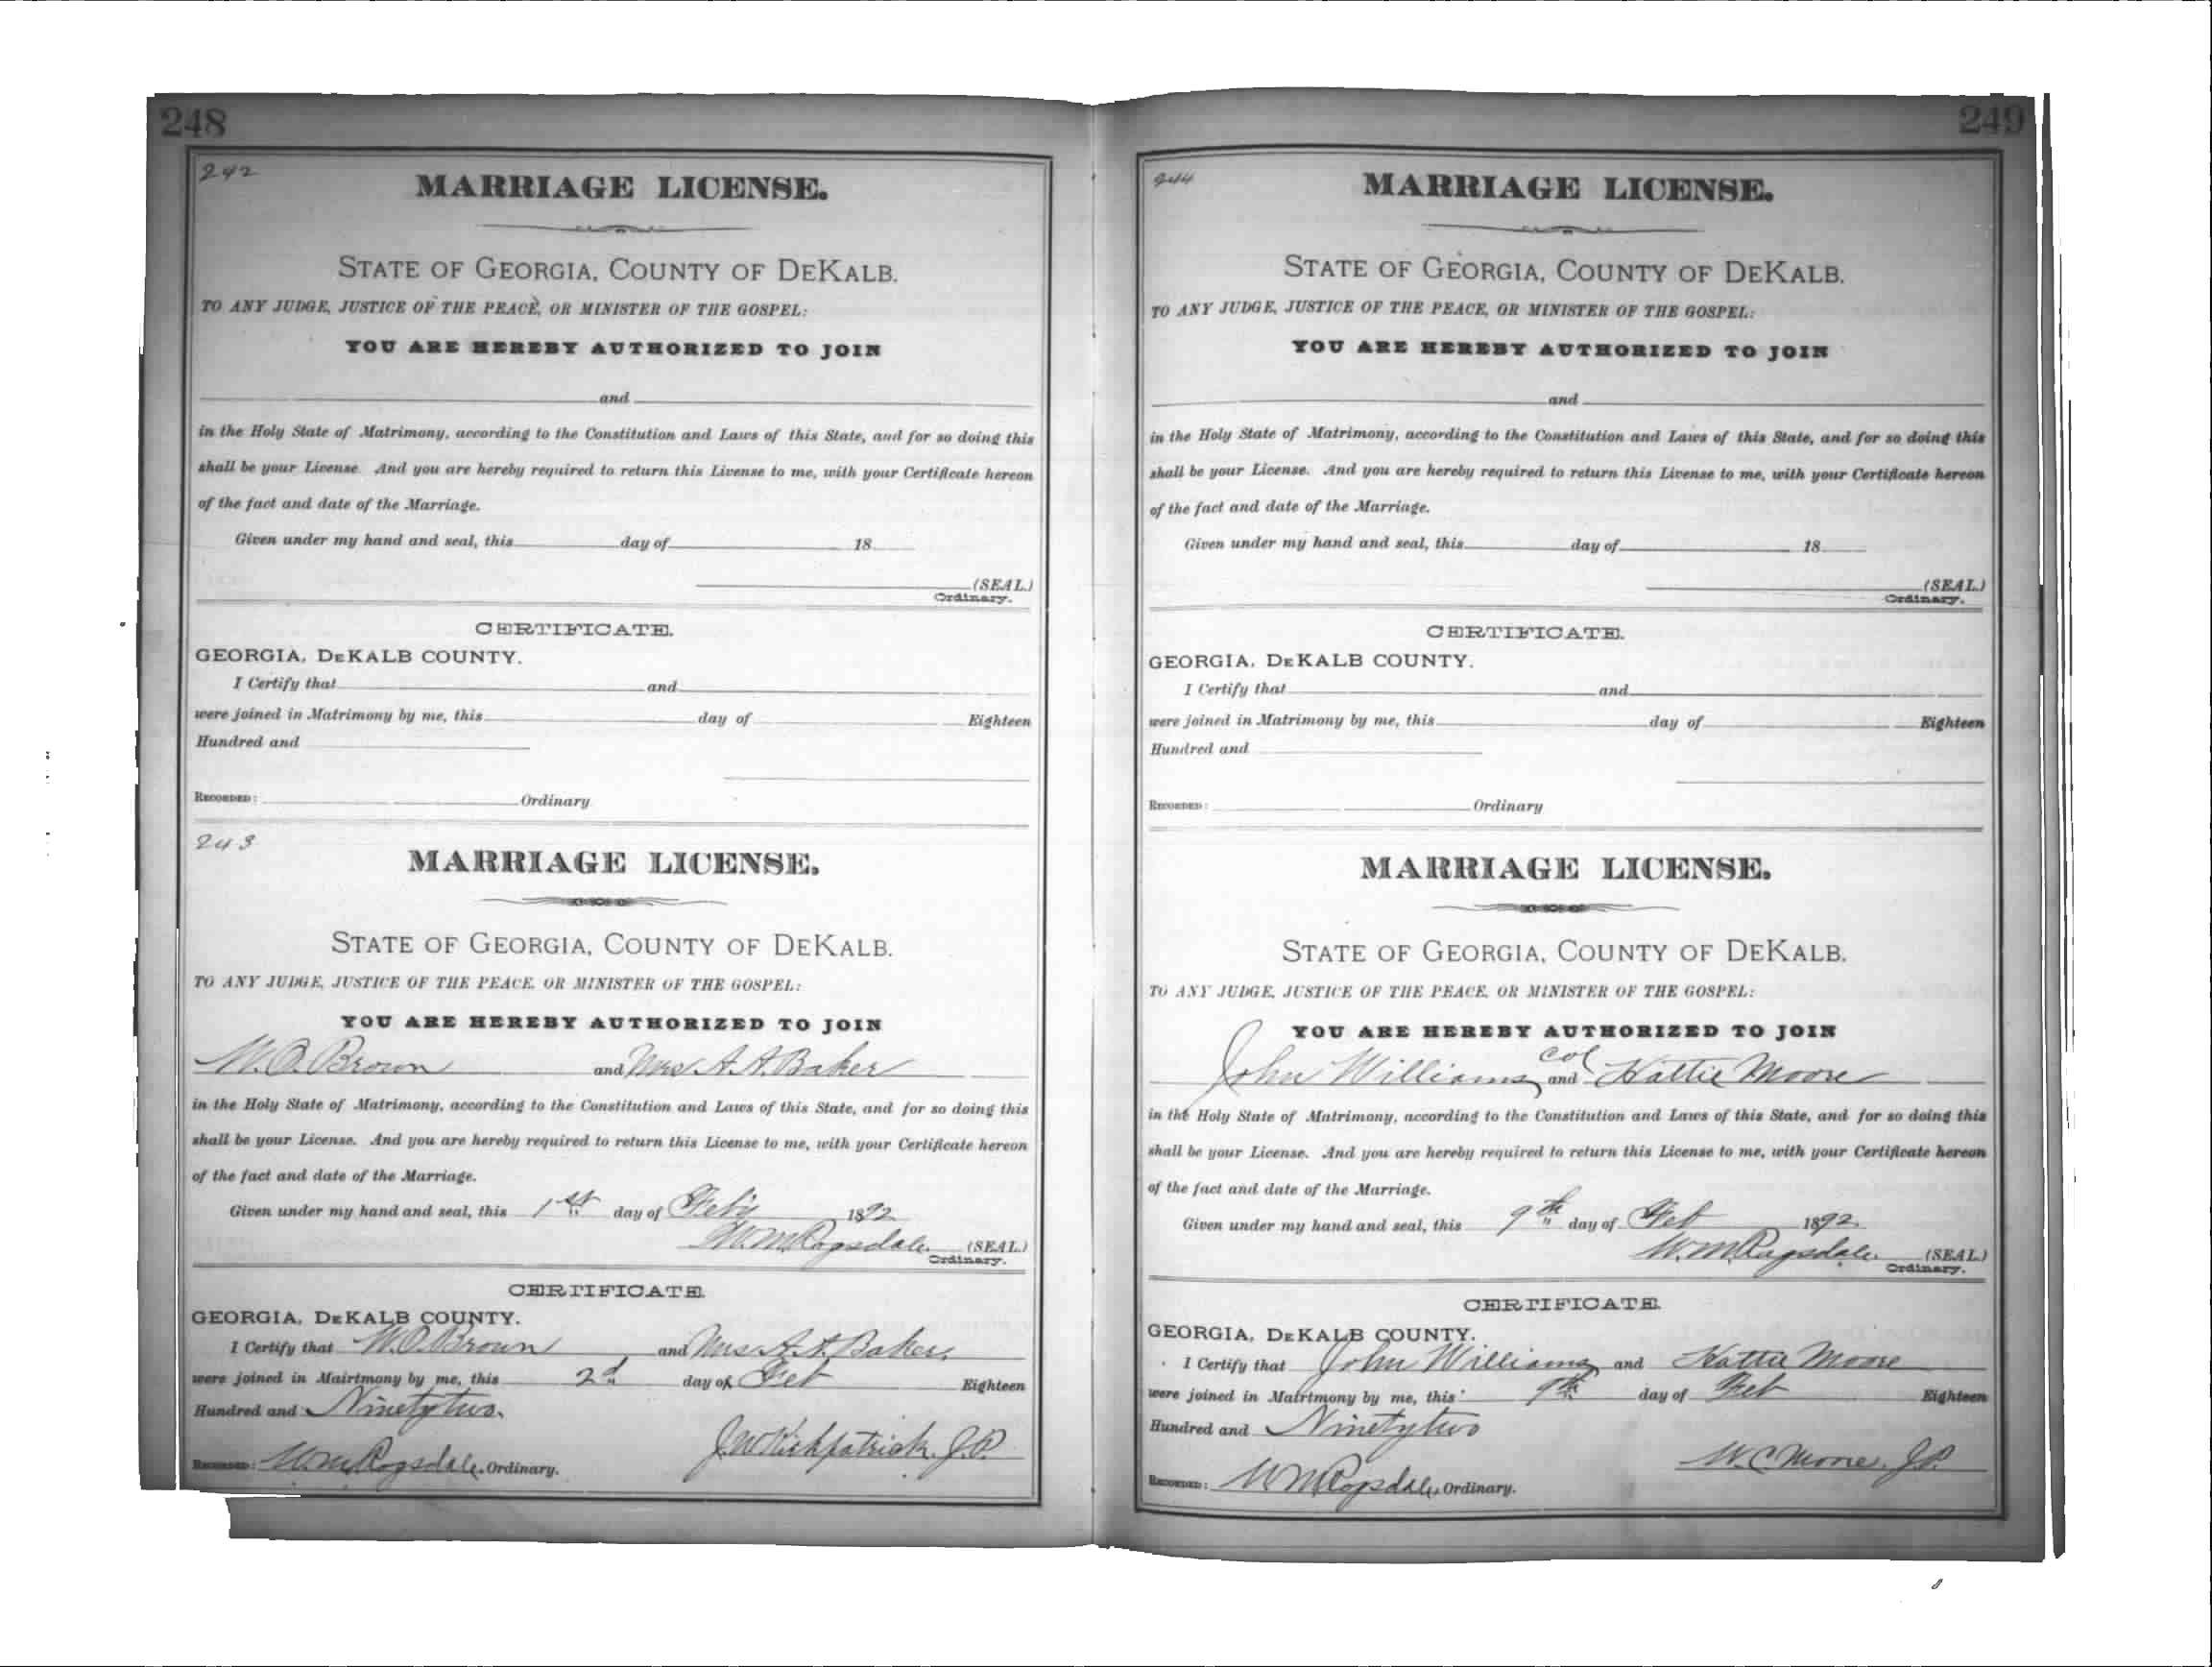 248
242
MARRIAGE LICENSE.
STATE OF GEORGIA, COUNTY OF DEKALB.
TO ANY JUDGE, JUSTICE OF THE PEACE, OR MINISTER OF THE GOSPEL:
YOU ARE HEREBY AUTHORIZED TO JOIN
and
in the Holy State of Matrimony, according to the Constitution and Laws of this State, and for so doing this
shall be your License. And you are hereby required to return this License to me, with your Certificate hereon
of the fact and date of the Marriage.
Given under my hand and seal, this day of 18
(SEAL.)
Ordinary.
CERTIFICATE.
GEORGIA, DEKALB COUNTY.
I Certify that and
were joined in Matrimony by me, this day of Eighteen
Hundred and
RECORDED: Ordinary
243
MARRIAGE LICENSE.
STATE OF GEORGIA, COUNTY OF DEKALB.
TO ANY JUDGE, JUSTICE OF THE PEACE, OR MINISTER OF THE GOSPEL:
YOU ARE HEREBY AUTHORIZED TO JOIN
W.O. Brown and Mrs A.A. Baker
in the Holy State of Matrimony, according to the Constitution and Laws of this State, and for so doing this
shall be your License. And you are hereby required to return this License to me, with your Certificate hereon
of the fact and date of the Marriage.
Given under my hand and seal, this 1st day of Feb'y 1892
W.M. Ragsdale. (SEAL.)
Ordinary.
CERTIFICATE.
GEORGIA, DEKALB COUNTY.
I Certify that W.O. Brown and Mrs A.A. Baker,
were joined in Mairtmony by me, this 2d day of Feb Eighteen
Hundred and Ninetytwo.
J.W. Kirkpatrick. J.P.
RECORDED: W.M. Ragsdale, Ordinary.
249
244
MARRIAGE LICENSE.
STATE OF GEORGIA, COUNTY OF DEKALB.
TO ANY JUDGE, JUSTICE OF THE PEACE, OR MINISTER OF THE GOSPEL:
YOU ARE HEREBY AUTHORIZED TO JOIN
and
in the Holy State of Matrimony, according to the Constitution and Laws of this State, and for so doing this
shall be your License. And you are hereby required to return this License to me, with your Certificate hereon
of the fact and date of the Marriage.
Given under my hand and seal, this day of 18
(SEAL.)
Ordinary.
CERTIFICATE.
GEORGIA, DEKALB COUNTY.
I Certify that and
were joined in Matrimony by me, this day of Eighteen
Hundred and
RECORDED: Ordinary
MARRIAGE LICENSE.
STATE OF GEORGIA, COUNTY OF DEKALB.
TO ANY JUDGE, JUSTICE OF THE PEACE, OR MINISTER OF THE GOSPEL:
YOU ARE HEREBY AUTHORIZED TO JOIN
col
John Williams and Hattie Moore
in the Holy State of Matrimony, according to the Constitution and Laws of this State, and for so doing this
shall be your License. And you are hereby required to return this License to me, with your Certificate hereon
of the fact and date of the Marriage.
Given under my hand and seal, this 9th day of Feb 1892
W.M. Ragsdale. (SEAL.)
Ordinary.
CERTIFICATE.
GEORGIA, DEKALB COUNTY.
I Certify that John Williams and Hattie Moore
were joined in Mairtmony by me, this 9th day of Feb Eighteen
Hundred and Ninetytwo
W.C. Moore. J.P.
RECORDED: W.M. Ragsdale, Ordinary.